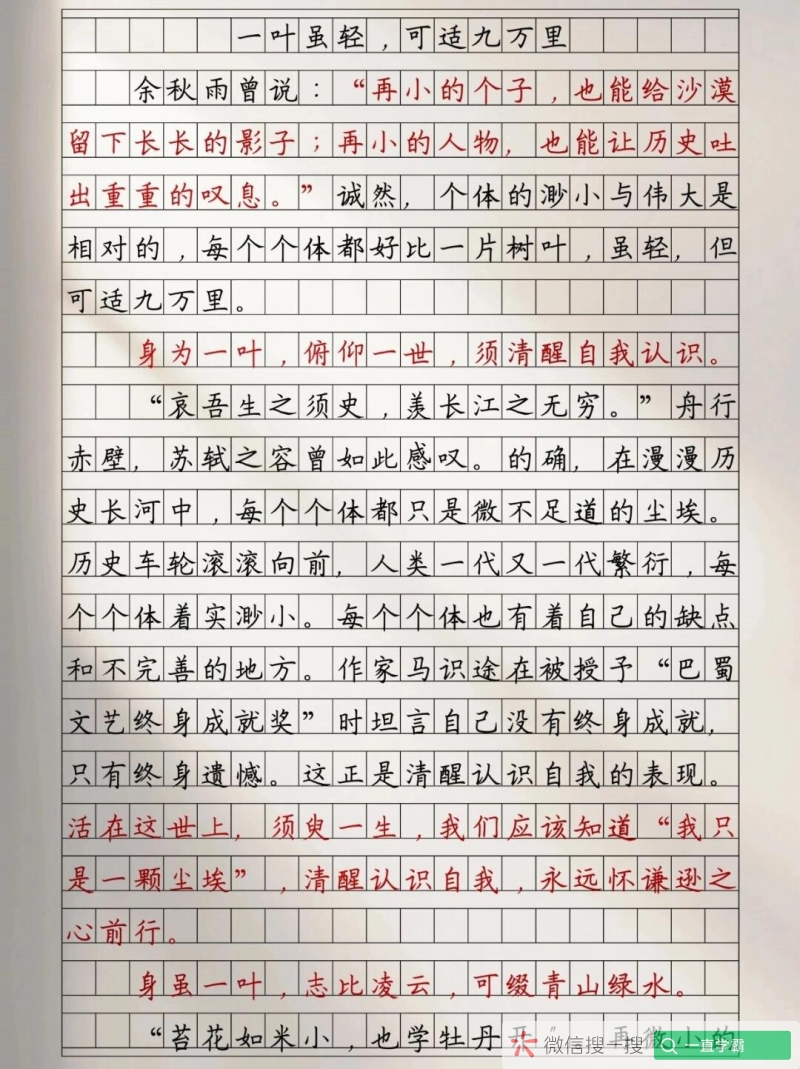 一叶虽轻，可适九万里
余秋雨曾说：“再小的个子，也能给沙漠
留下长长的影子；再小的人物，也能让历史吐
出重重的叹息。”诚然，个体的渺小与伟大是
相对的，每个个体都好比一片树叶，虽轻，但
可适九万里。
身为一叶，俯仰一世，须清醒自我认识。
“哀吾生之须史，羡长江之无穷。”舟行
赤壁，苏轼之容曾如此感叹。的确，在漫漫历
史长河中，每个个体都只是微不足道的尘埃。
历史车轮滚滚向前，人类一代又一代繁衍，每
个个体着实渺小。每个个体也有着自己的缺点
和不完善的地方。作家马识途在被授予“巴蜀
文艺终身成就奖”时坦言自己没有终身成就，
只有终身遗憾。这正是清醒认识自我的表现。
活在这世上，须臾一生，我们应该知道“我只
是一颗尘埃”，清醒认识自我，永远怀谦逊之
心前行。
身虽一叶，志比凌云，可缀青山绿水。
“苔花如米小，也学牡丹开”，再微小的
微信搜一搜 一直学霸